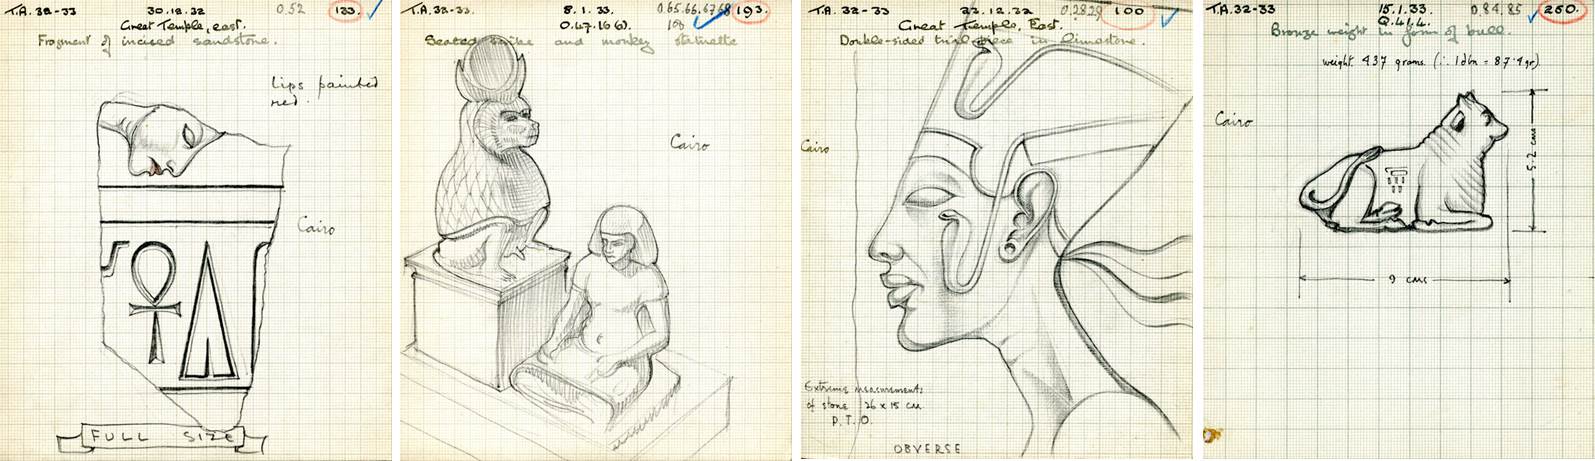 T.A. 32-33 30.12.32 0.52 133
Great Temple, east.
Fragment of incised sandstone.
Lips painted
red.
Cairo
FULL SIZE
T.A. 32-33. 8.1.33. 0.65.66.67.68 193.
0.47.16 (6).
Seated scribe and monkey statuette
Cairo
T.A. 32-33. 22.12.32 0.28.29 100
Great Temple, East.
Double-sided trial piece in limestone.
Cairo
Extreme measurements
of stone 26 x 15 cm
P.T.O.
OBVERSE
T.A. 32-33 15.1.33. 0.84.85 250.
Q.41.4.
Bronze weight in form of bull.
weight. 437 grams. (∴ 1 dbn = 87.4 gr)
Cairo
5.2 cms
9 cms